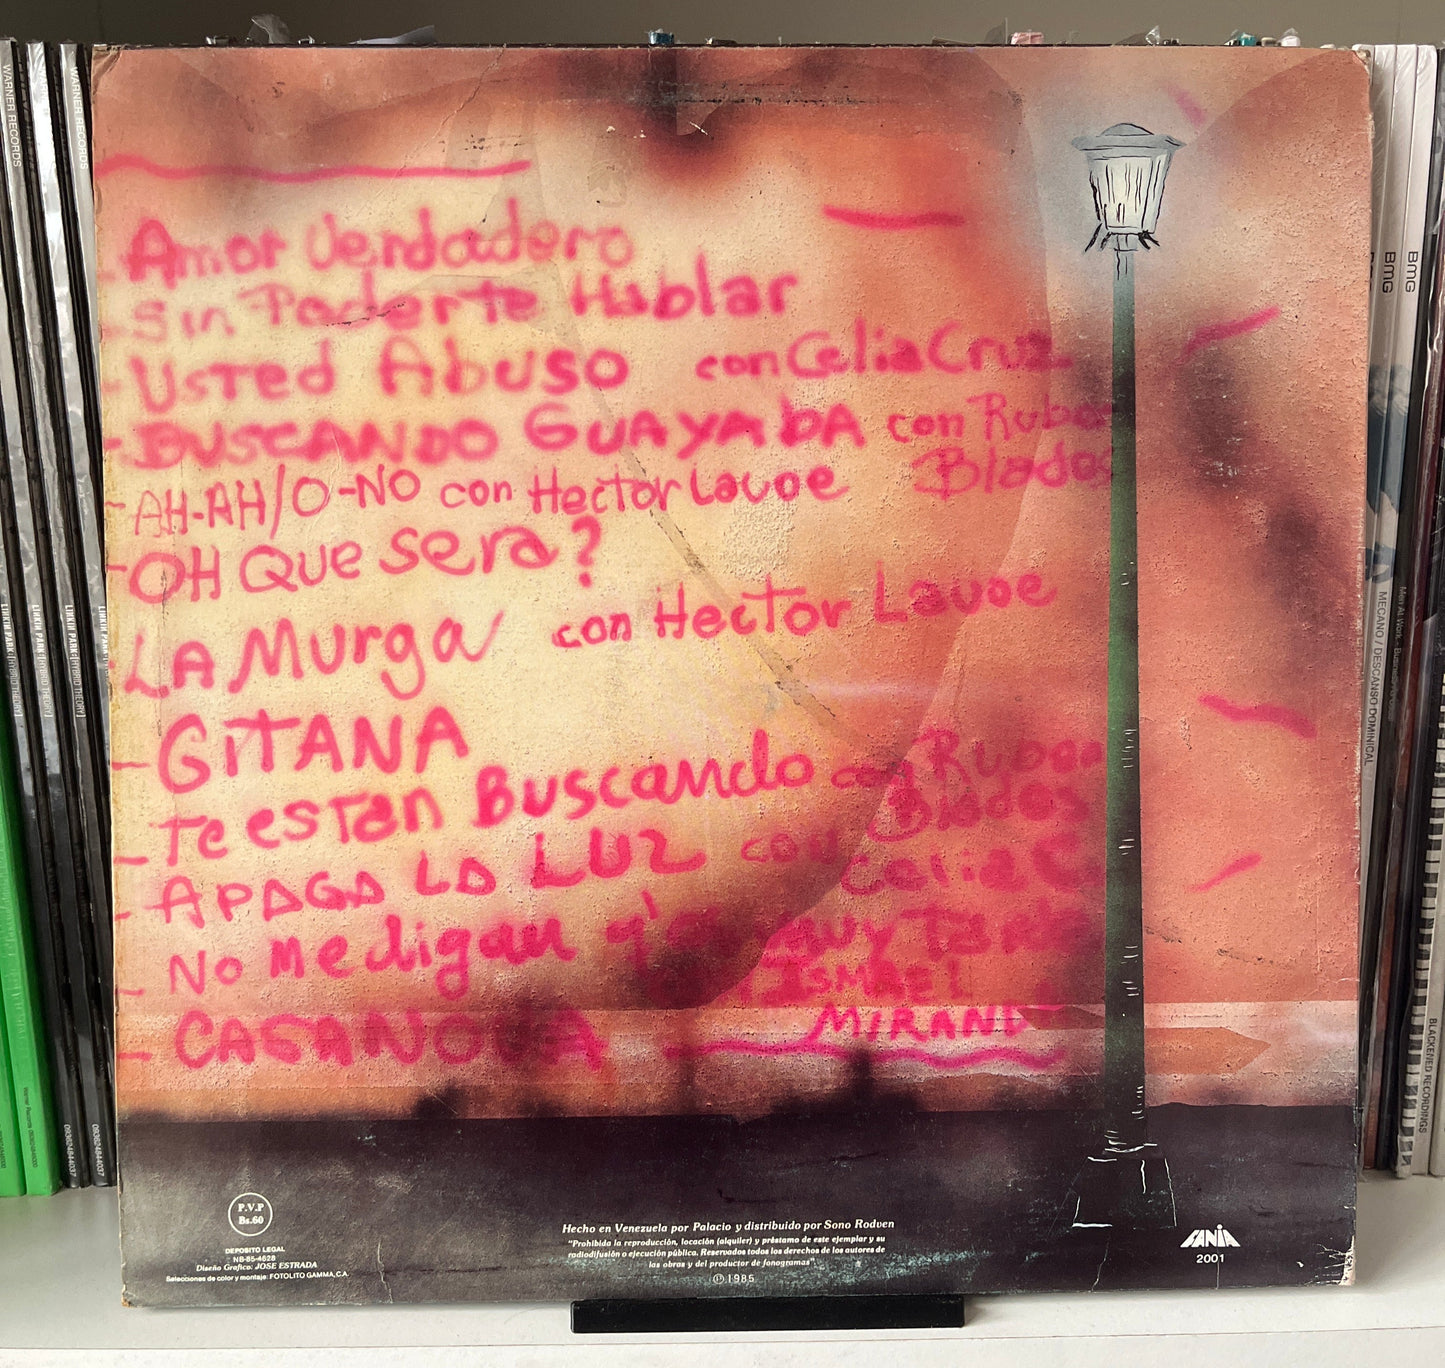 - Amor Verdadero
- Sin Poderte Hablar
- Usted Abuso con Celia Cruz
- BUSCANDO GUAYABA con Ruben
Blades
- AH-AH/O-NO con Hector Lavoe
- OH Que sera?
- LA Murga con Hector Lavoe
- GiTANA
- Te estan Buscando con Ruben
Blades
- APAGA LA LUZ con Celia C
- No me digan q' es muy Tarde
ISMAEL
MIRAND
- CASANOVA
P.V.P
Bs.60
DEPOSITO LEGAL
NB-85-4628
Diseño Grafico: JOSE ESTRADA
Selecciones de color y montaje: FOTOLITO GAMMA, C.A.
Hecho en Venezuela por Palacio y distribuido por Sono Rodven
"Prohibida la reproducción, locación (alquiler) y préstamo de este ejemplar y su
radiodifusión o ejecución pública. Reservados todos los derechos de los autores de
las obras y del productor de fonogramas"
Ⓟ 1985
FANIA
2001
WARNER RECORDS
WARNER RECORDS
LINKIN PARK [HYBRID THEORY]
LINKIN PARK [HYBRID THEORY]
LINKIN PARK [HYBRID THEORY]
BMG
BMG
MECANO / DESCANSO DOMINICAL
Men At Work
BLACKENED RECORDINGS